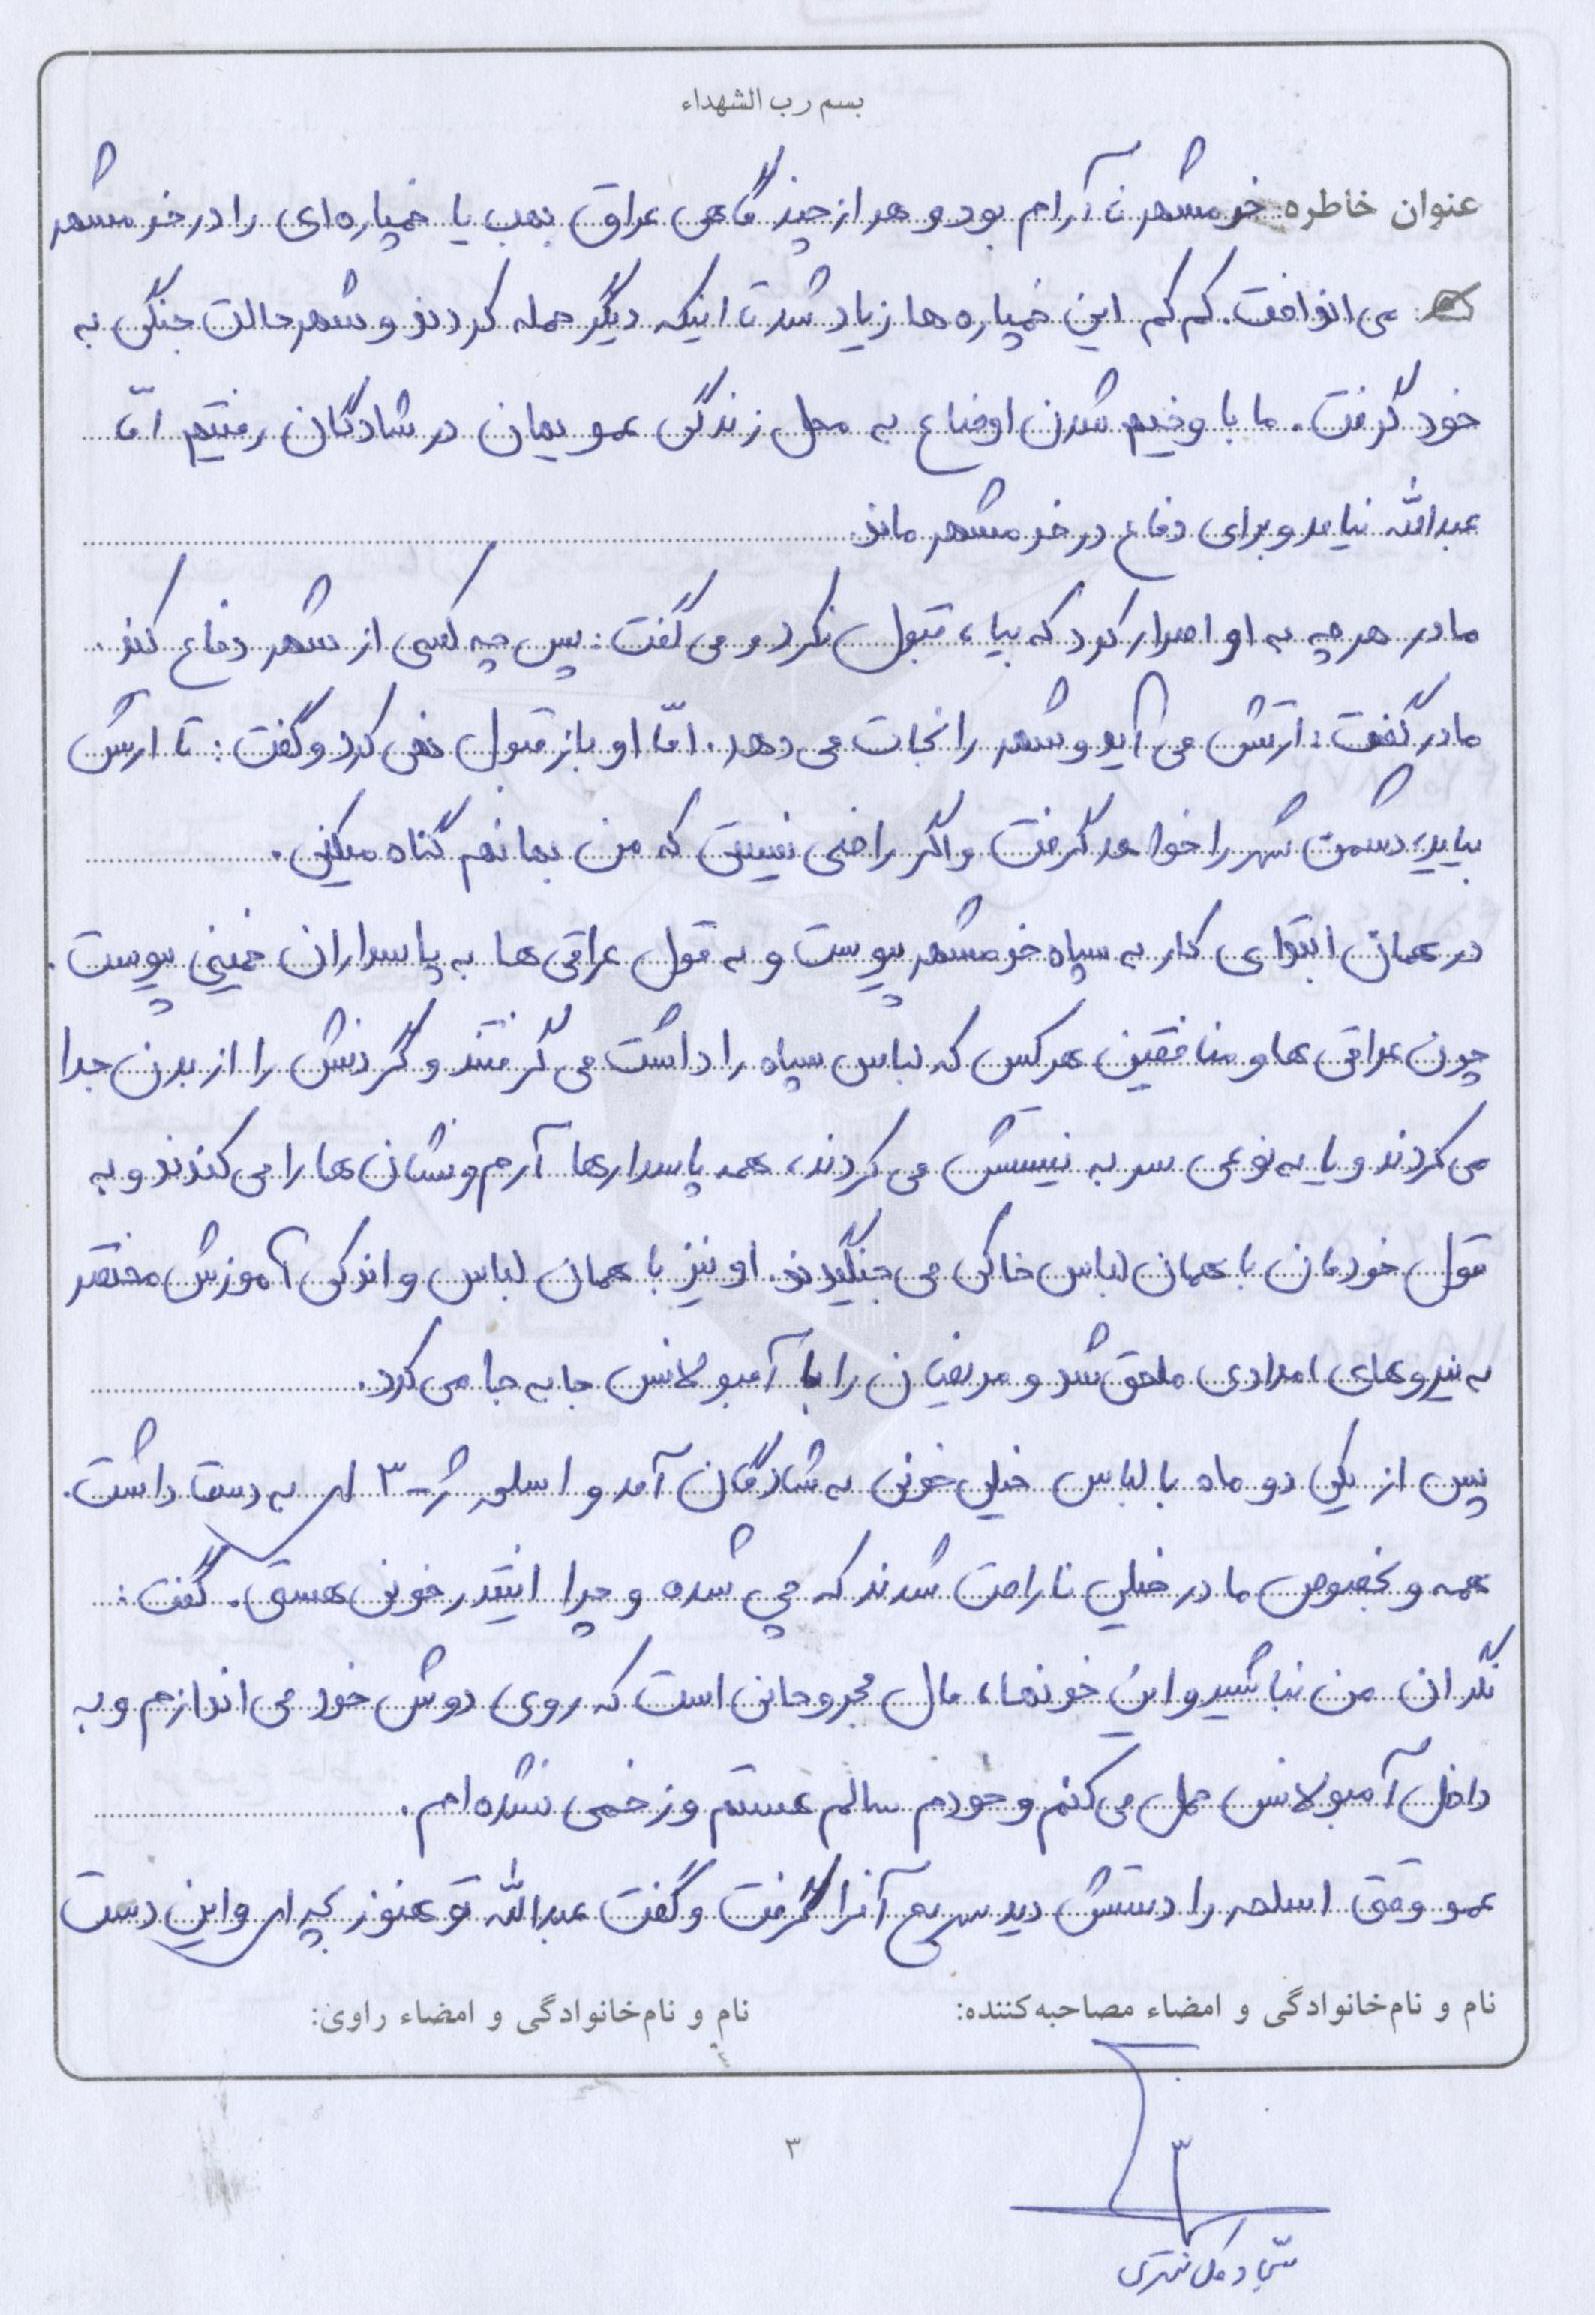 بسم رب الشهداء
عنوان خاطره: خرمشهر ناآرام بود و هر از چند گاهی عراق بمب یا خمپاره‌ای را در خرمشهر
می‌انداخت. کم کم این خمپاره‌ها زیاد شد تا اینکه دیگر حمله کردند و شهر حالت جنگی به
خود گرفت. ما با وخیم شدن اوضاع به محل زندگی عمویمان در شادگان رفتیم امّا
عبدالله نیامد و برای دفاع در خرمشهر ماند.
مادر هر چه به او اصرار کرد که بیا، قبول نکرد و می‌گفت: پس چه کسی از شهر دفاع کند.
مادر گفت: ارتش می‌آید و شهر را نجات می‌دهد. امّا او باز قبول نمی‌کرد و گفت: تا ارتش
بیاید، دشمن شهر را خواهد گرفت و اگر راضی نیستی که من بمانم گناه میکنی.
در همان ابتدای کار به سپاه خرمشهر پیوست و به قول عراقی‌ها به پاسداران خمینی پیوست.
چون عراقی‌ها و منافقین هر کس که لباس سپاه را داشت می‌گرفتند و گردنش را از بدن جدا
می‌کردند و یا به نوعی سر به نیستش می‌کردند، همه پاسدارها آرم و نشان‌ها را می‌کندند و به
قول خودمان با همان لباس خاکی می‌جنگیدند. او نیز با همان لباس و اندکی آموزش مختصر
به نیروهای امدادی ملحق شد و مریضان را با آمبولانس جا به جا می‌کرد.
پس از یکی دو ماه با لباس خیلی خونی به شادگان آمد و اسلحه ژ-۳ ای به دست داشت.
همه و بخصوص مادر خیلی ناراحت شدند که چی شده و چرا اینقدر خونی هستی. گفت:
نگران من نباشید و این خونها، مال مجروحانی است که روی دوش خود می‌اندازم و به
داخل آمبولانس حمل می‌کنم و خودم سالم هستم و زخمی نشده‌ام.
عمو وقتی اسلحه را دستش دید سریع آنرا گرفت و گفت عبدالله تو هنوز بچه‌ای و این دست
نام و نام خانوادگی و امضاء مصاحبه‌کننده:
نام و نام خانوادگی و امضاء راوی:
۳